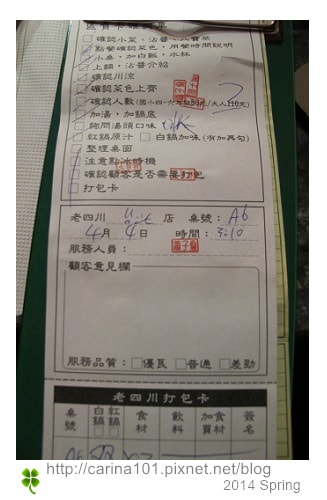 確認小菜、沾醬、
點餐確認菜色,用餐時間說明
小桌,加白飯,水杯
上鍋,沾醬介紹
確認川涼
確認菜色上齊
確認人數(國小四-六年級
加湯,加鍋底
詢問湯頭口味 OK
紅鍋原汁 白鍋加味(有加再勾)
整理桌面
注意點冰時機
確認顧客是否需要打包
打包卡
老四川 店 桌號: A6
4月 4日 時間: 3:10
服務人員:
顧客意見欄
服務品質: 優良 普通 差勁
老四川打包卡
桌號 白鍋 紅鍋 食材 飲料 加買 食材 簽名
http://carina101.pixnet.net/blog
2014 Spring